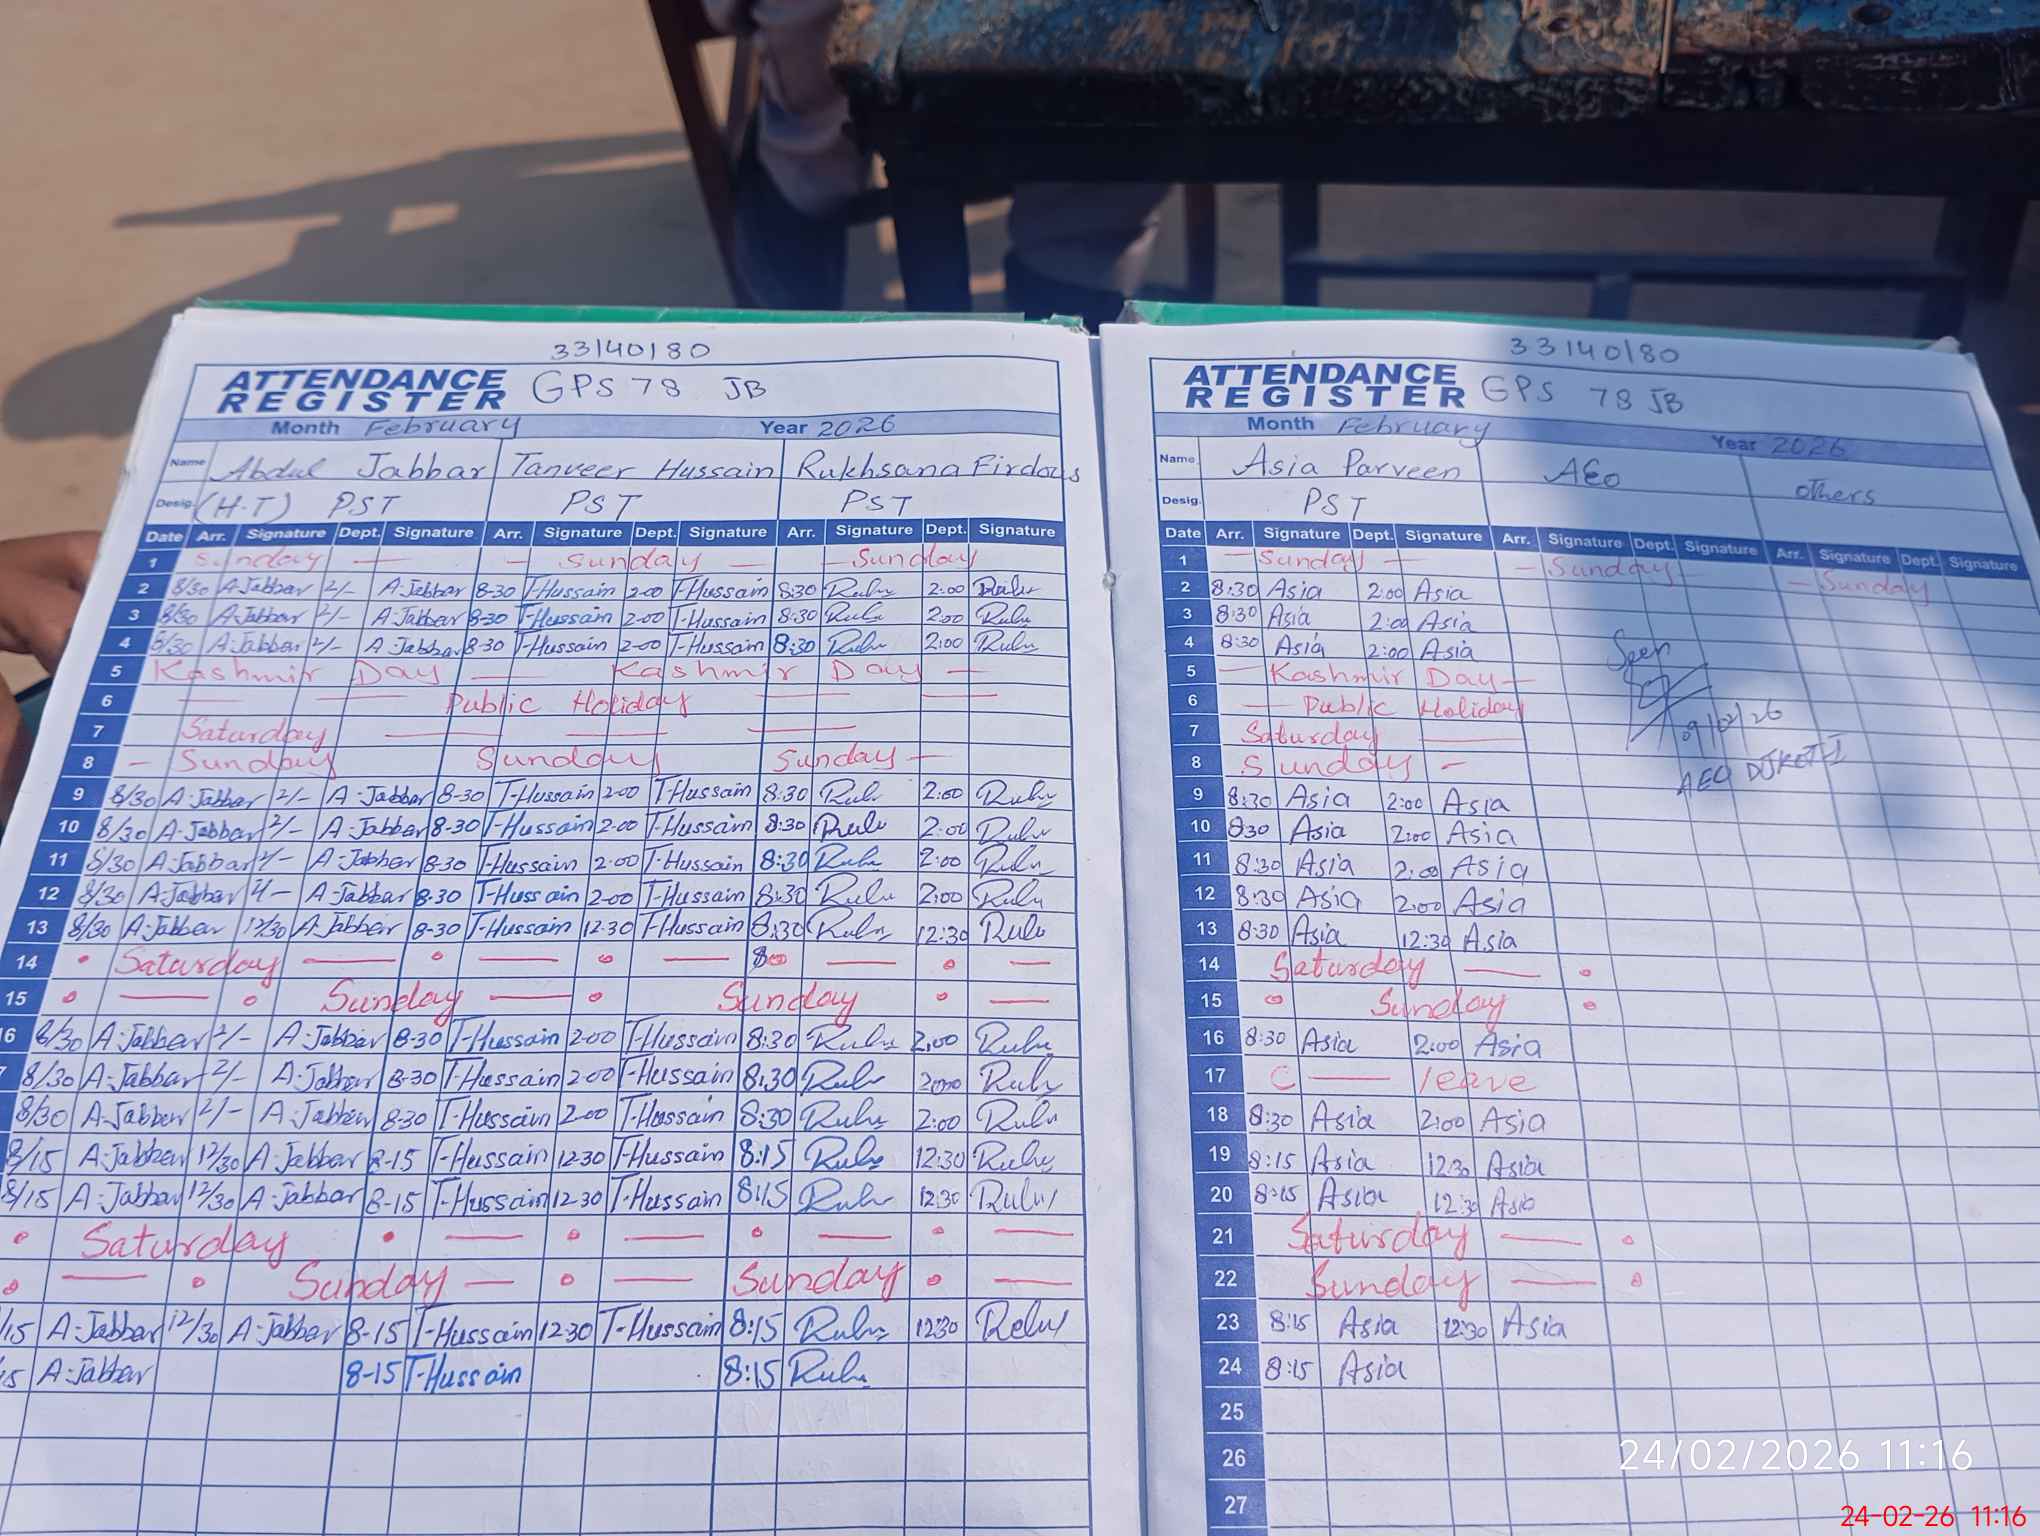 33140180
ATTENDANCE REGISTER GPS 78 JB
Month February Year 2026
Name Abdul Jabbar Tanveer Hussain Rukhsana Firdous
Desig. (H.T) PST PST PST
Date Arr. Signature Dept. Signature Arr. Signature Dept. Signature Arr. Signature Dept. Signature
1 Sunday — — Sunday — — Sunday
2 8/30 A-Jabbar 2/- A-Jabbar 8-30 T-Hussain 2-00 T-Hussain 8:30 Ruhr 2:00 Ruhr
3 8/30 A-Jabbar 2/- A-Jabbar 8-30 T-Hussain 2-00 T-Hussain 8:30 Ruhr 2:00 Ruhr
4 8/30 A-Jabbar 2/- A-Jabbar 8-30 T-Hussain 2-00 T-Hussain 8:30 Ruhr 2:00 Ruhr
5 Kashmir Day — Kashmir Day —
6 — — Public Holiday — —
7 Saturday — — —
8 — Sunday Sunday Sunday —
9 8/30 A-Jabbar 2/- A-Jabbar 8-30 T-Hussain 2-00 T-Hussain 8:30 Ruhr 2:00 Ruhr
10 8/30 A-Jabbar 2/- A-Jabbar 8-30 T-Hussain 2-00 T-Hussain 8:30 Ruhr 2:00 Ruhr
11 8/30 A-Jabbar 2/- A-Jabbar 8-30 T-Hussain 2-00 T-Hussain 8:30 Ruhr 2:00 Ruhr
12 8/30 A-Jabbar 2/- A-Jabbar 8-30 T-Hussain 2-00 T-Hussain 8:30 Ruhr 2:00 Ruhr
13 8/30 A-Jabbar 12/30 A-Jabbar 8-30 T-Hussain 12-30 T-Hussain 8:30 Ruhr 12:30 Ruhr
14 Saturday — — — — —
15 — Sunday — Sunday —
16 8/30 A-Jabbar 2/- A-Jabbar 8-30 T-Hussain 2-00 T-Hussain 8:30 Ruhr 2:00 Ruhr
7 8/30 A-Jabbar 2/- A-Jabbar 8-30 T-Hussain 2-00 T-Hussain 8:30 Ruhr 2:00 Ruhr
8/30 A-Jabbar 2/- A-Jabbar 8-30 T-Hussain 2-00 T-Hussain 8:30 Ruhr 2:00 Ruhr
8/15 A-Jabbar 12/30 A-Jabbar 8-15 T-Hussain 12-30 T-Hussain 8:15 Ruhr 12:30 Ruhr
8/15 A-Jabbar 12/30 A-Jabbar 8-15 T-Hussain 12-30 T-Hussain 8:15 Ruhr 12:30 Ruhr
Saturday — — — —
— Sunday — — Sunday —
/15 A-Jabbar 12/30 A-Jabbar 8-15 T-Hussain 12-30 T-Hussain 8:15 Ruhr 12:30 Ruhr
15 A-Jabbar 8-15 T-Hussain 8:15 Ruhr
33140180
ATTENDANCE REGISTER GPS 78 JB
Month February Year 2026
Name Asia Parveen AEO others
Desig. PST
Date Arr. Signature Dept. Signature Arr. Signature Dept. Signature Arr. Signature Dept. Signature
1 — Sunday — — Sunday — Sunday
2 8:30 Asia 2:00 Asia
3 8:30 Asia 2:00 Asia
4 8:30 Asia 2:00 Asia
Seen
5 — Kashmir Day —
6 — Public Holiday
09/02/26
7 Saturday —
8 Sunday —
AEO
9 8:30 Asia 2:00 Asia
10 830 Asia 2:00 Asia
11 8:30 Asia 2:00 Asia
12 8:30 Asia 2:00 Asia
13 8:30 Asia 12:30 Asia
14 Saturday —
15 Sunday
16 8:30 Asia 2:00 Asia
17 C — leave
18 8:30 Asia 2:00 Asia
19 8:15 Asia 12:30 Asia
20 8:15 Asia 12:30 Asia
21 Saturday —
22 Sunday —
23 8:15 Asia 12:30 Asia
24 8:15 Asia
25
26
27
24/02/2026 11:16
24-02-26 11:16